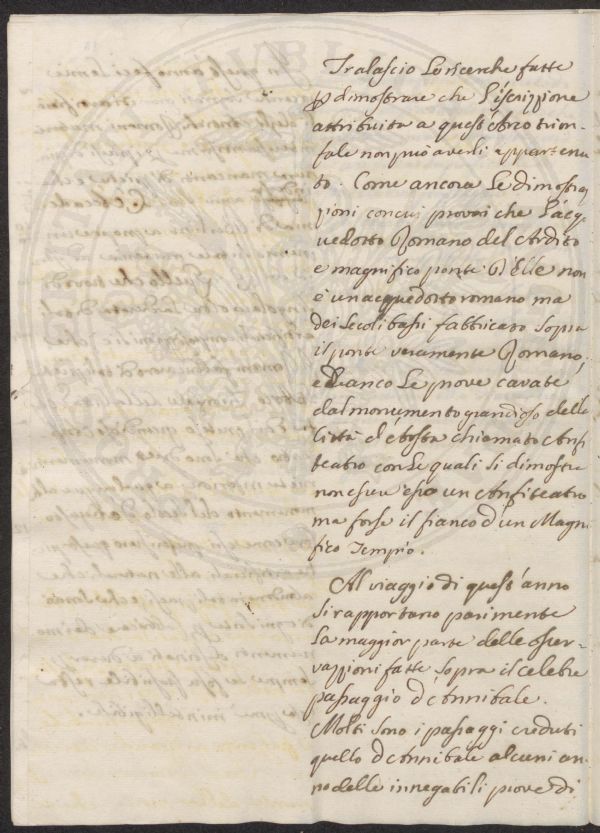 Tralascio le ricerche fatte
p dimostrare che l'iscrizzione
attribuita a quest'Arco trion-
fale non può averli appartenu
to. Come ancora le dimostra
zioni con cui provai che l'acq-
vedotto Romano del Ardito
e magnifico ponte d'Elle non
è un acquedotto romano ma
dei secoli bassi fabbricato sopra
il ponte veramente Romano,
ed anco le prove cavate
dal monumento grandioso della
Città d'Aosta chiamato Anfi
teatro con le quali si dimostra
non essere esso un Anfiteatro
ma forse il fianco d'un Magni
fico Tempio.
Al viaggio di quest'anno
si rapportano parimente
la maggior parte delle osser-
vazzioni fatte sopra il celebre
passaggio d'Annibale.
Molti sono i passaggi creduti
quello d'Annibale alcuni an
no delle innegabili prove di